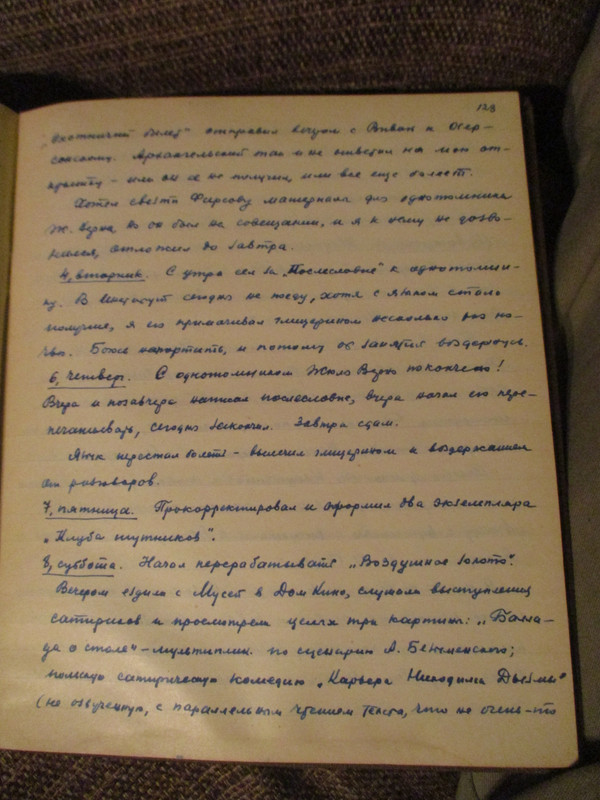 129
билет" отправил вечером с к
Архангельский так и не ответил на мой от-
– или он её не получил, или все еще болеет.
Хотел свезти Фирсову материала для однотомника
Ж. Верна но он был на совещании, и я к нему не дозво-
нился, отложил до завтра.
4, вторник. С утра сел за „Послесловие" к однотомни-
ку. В сегодня не поеду, хотя с языком стало
получше, я его примачивал глицерином несколько раз но-
чью. Боюсь напортить, и потому от занятий воздержусь.
6, четверг. С однотомником Жюля Верна покончено!
Вчера и позавчера написал послесловие, вчера начал его пере-
печатывать, сегодня закончил. Завтра сдам.
Язык перестал болеть – вылечил глицерином и воздержанием
от разговоров.
7, пятница. Прокорректировал и оформил два экземпляра
„Клуба шутников".
8, суббота. Начал перерабатывать „Воздушное золото".
Вечером ездили с Мусей в Дом Кино, слушали выступления
сатириков и просмотрели целых три картины: „Балла-
да о столе" – мультиплик. по сценарию А.
польскую сатирическую комедию „Карьера Никодима Дызмы"
(не озвученную, с параллельным чтением текста, что не очень-то